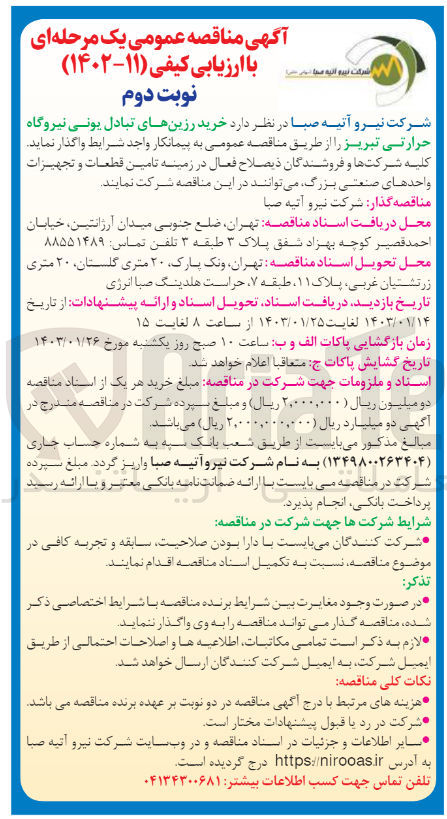 آگهی مناقصه عمومی یک مرحله‌ای
با ارزیابی کیفی (۱۱-۱۴۰۲)
نوبت دوم
شرکت نیرو آتیه صبا
شرکت نیرو آتیه صبا در نظر دارد خرید رزین‌های تبادل یونی نیروگاه
حرارتی تبریز را از طریق مناقصه عمومی به پیمانکار واجد شرایط واگذار نماید.
کلیه شرکت‌ها و فروشندگان ذیصلاح فعال در زمینه تامین قطعات و تجهیزات
واحدهای صنعتی بزرگ، می‌توانند در این مناقصه شرکت نمایند.
مناقصه‌گذار: شرکت نیرو آتیه صبا
محل دریافت اسناد مناقصه: تهران، ضلع جنوبی میدان آرژانتین، خیابان
احمدقصیر کوچه بهزاد شفق پلاک ۳ طبقه ۳ تلفن تماس: ۸۸۵۵۱۴۸۹
محل تحویل اسناد مناقصه: تهران، ونک پارک، ۲۰ متری گلستان، ۲۰ متری
زرتشتیان غربی، پلاک ۱۱، طبقه ۷، حراست هلدینگ صبا انرژی
تاریخ بازدید، دریافت اسناد، تحویل اسناد و ارائه پیشنهادات: از تاریخ
۱۴۰۳/۰۱/۱۴ لغایت ۱۴۰۳/۰۱/۲۵ از ساعت ۸ لغایت ۱۵
زمان بازگشایی پاکات الف و ب: ساعت ۱۰ صبح روز یکشنبه مورخ ۱۴۰۳/۰۱/۲۶
تاریخ گشایش پاکات ج: متعاقبا اعلام خواهد شد.
اسناد و ملزومات جهت شرکت در مناقصه: مبلغ خرید هر یک از اسناد مناقصه
دو میلیون ریال (۲,۰۰۰,۰۰۰ ریال) و مبلغ سپرده شرکت در مناقصه مندرج در
آگهی دو میلیارد ریال (۲,۰۰۰,۰۰۰,۰۰۰ ریال) می‌باشد.
مبالغ مذکور می‌بایست از طریق شعب بانک سپه به شماره حساب جاری
(۱۳۴۹۸۰۰۲۶۳۴۰۴) به نام شرکت نیرو آتیه صبا واریز گردد. مبلغ سپرده
شرکت در مناقصه می بایست با ارائه ضمانت‌نامه بانکی معتبر و یا ارائه رسید
پرداخت بانکی، انجام پذیرد.
شرایط شرکت ها جهت شرکت در مناقصه:
●شرکت کنندگان می‌بایست با دارا بودن صلاحیت، سابقه و تجربه کافی در
موضوع مناقصه، نسبت به تکمیل اسناد مناقصه اقدام نمایند.
تذکر:
●در صورت وجود مغایرت بین شرایط برنده مناقصه با شرایط اختصاصی ذکر
شده، مناقصه گذار می تواند مناقصه را به وی واگذار ننماید.
●لازم به ذکر است تمامی مکاتبات، اطلاعیه ها و اصلاحات احتمالی از طریق
ایمیل شرکت، به ایمیل شرکت کنندگان ارسال خواهد شد.
نکات کلی مناقصه:
●هزینه های مرتبط با درج آگهی مناقصه در دو نوبت بر عهده برنده مناقصه می باشد.
●شرکت در رد یا قبول پیشنهادات مختار است.
●سایر اطلاعات و جزئیات در اسناد مناقصه و در وب‌سایت شرکت نیرو آتیه صبا
به آدرس https://nirooas.ir درج گردیده است.
تلفن تماس جهت کسب اطلاعات بیشتر: ۰۴۱۳۴۳۰۰۶۸۱